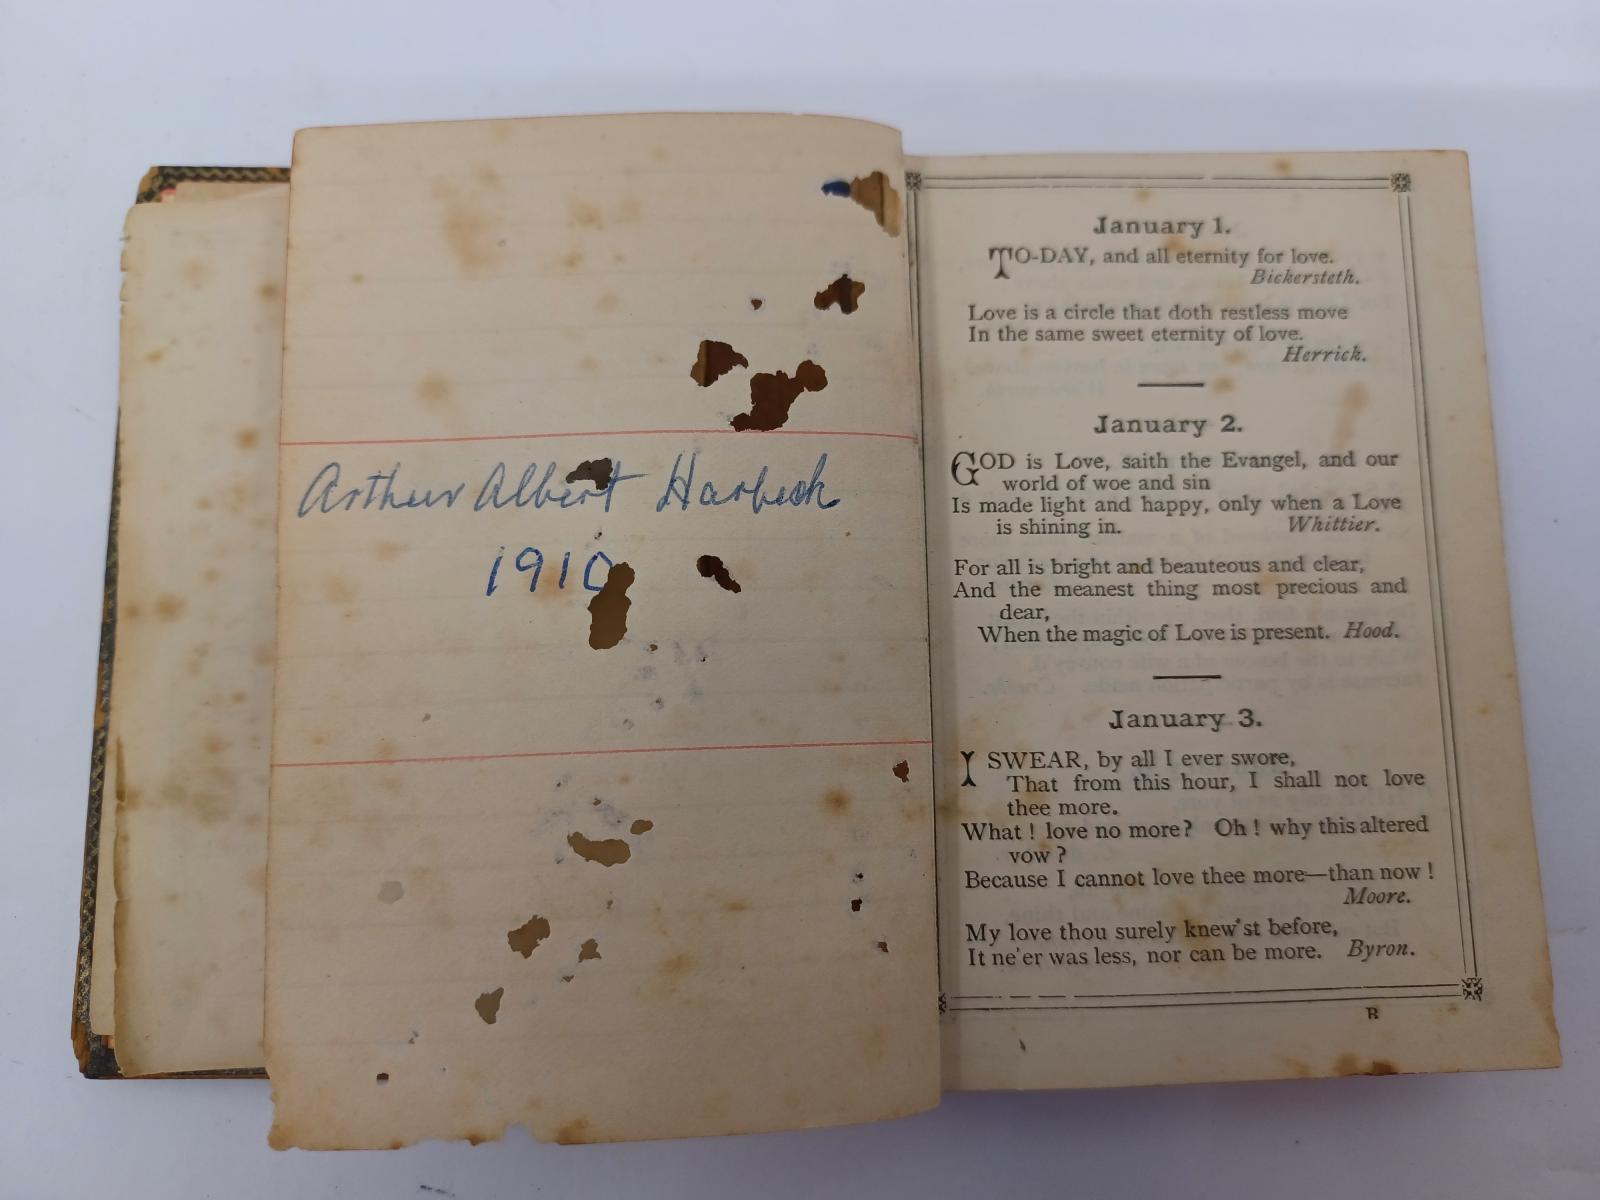 Arthur Albert Harbeck
1910
January 1.
TO-DAY, and all eternity for love.
Bickersteth.
Love is a circle that doth restless move
In the same sweet eternity of love.
Herrick.
January 2.
GOD is Love, saith the Evangel, and our
world of woe and sin
Is made light and happy, only when a Love
is shining in. Whittier.
For all is bright and beauteous and clear,
And the meanest thing most precious and
dear,
When the magic of Love is present. Hood.
January 3.
I SWEAR, by all I ever swore,
That from this hour, I shall not love
thee more.
What! love no more? Oh! why this altered
vow?
Because I cannot love thee more—than now!
Moore.
My love thou surely knew'st before,
It ne'er was less, nor can be more. Byron.
B